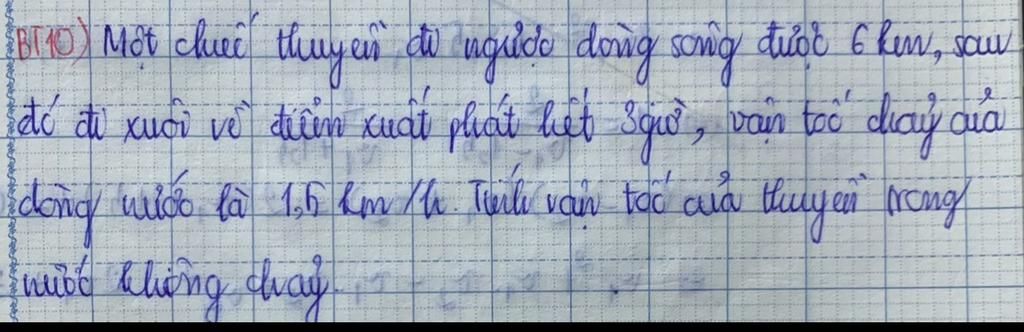 BT10) Một chiếc thuyền đi ngược dòng sông được 6 km, sau
đó đi xuôi về điểm xuất phát hết 3 giờ, vận tốc chảy của
dòng nước là 1,5 km/h. Tính vận tốc của thuyền trong
nước không chảy.